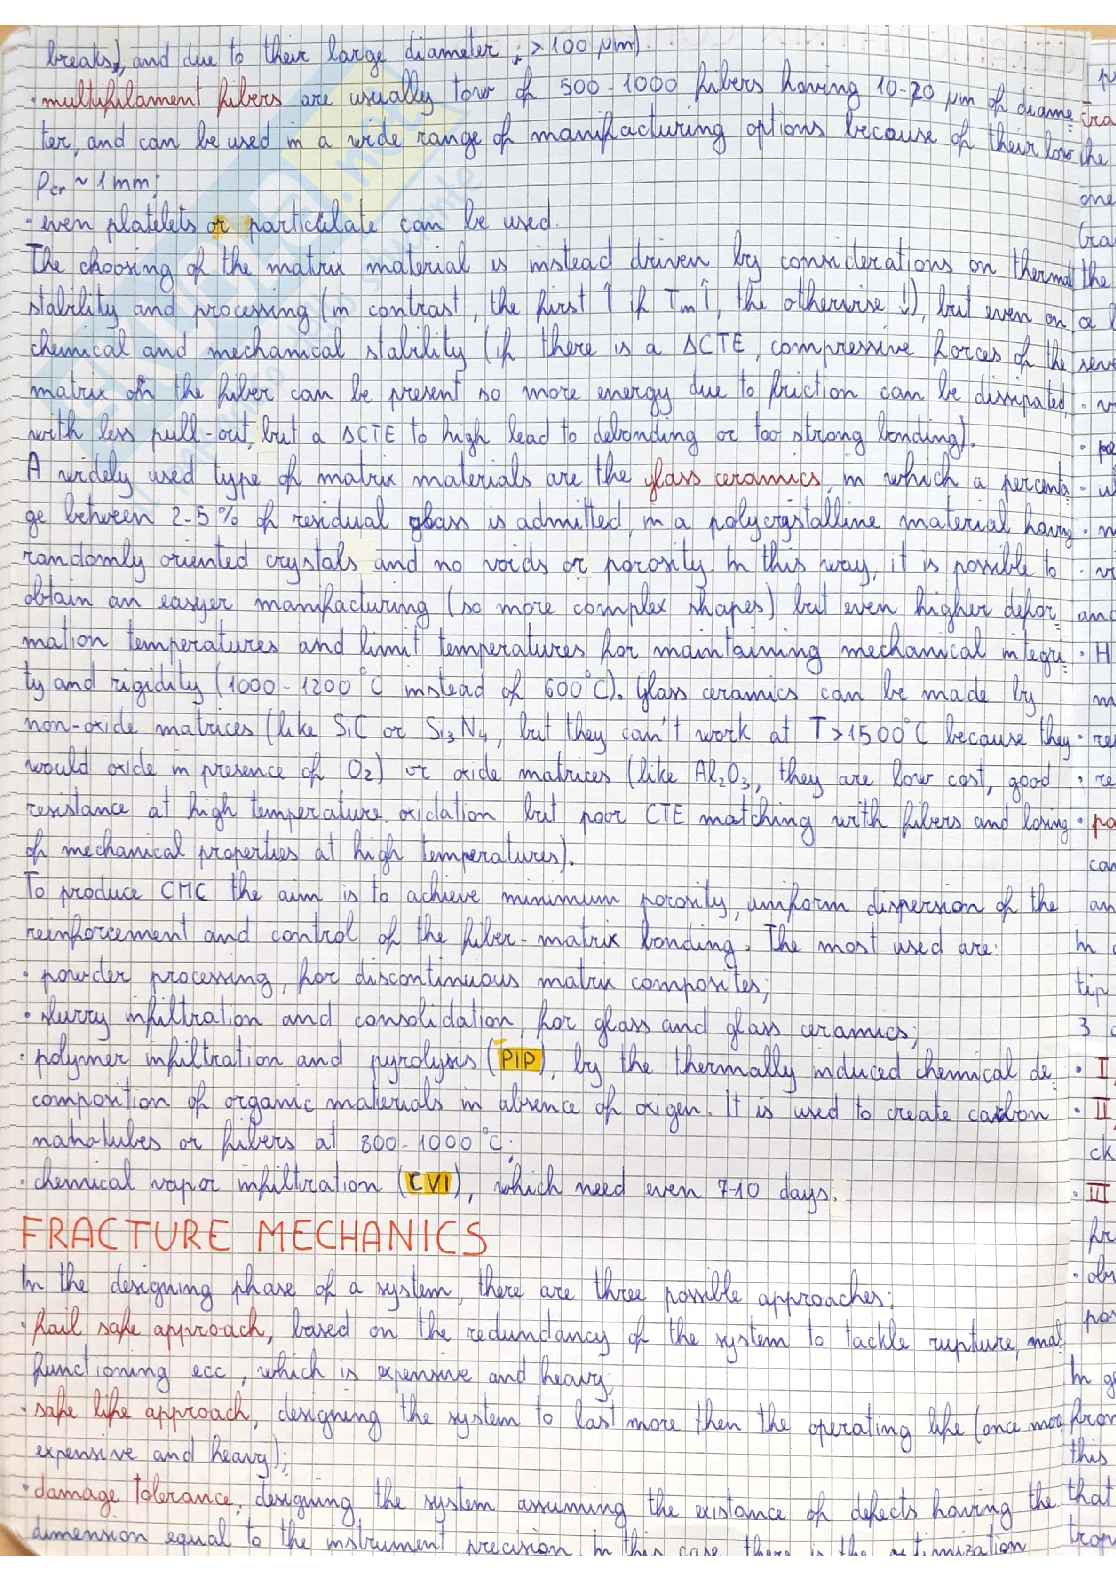 breaks), and due to their large diameter ; > 100 μm).
· multifilament fibers are usually tow of 500 - 1000 fibers having 10-20 μm of diame=
ter, and can be used in a wide range of manifacturing options because of their low
ρcr ~ 1 mm;
· even platelets or particulate can be used.
The choosing of the matrix material is instead driven by considerations on thermal
stability and processing (in contrast, the first ↑ if Tm↑, the otherwise ↓), but even on
chemical and mechanical stability (if there is a ΔCTE, compressive forces of the
matrix on the fiber can be present so more energy due to friction can be dissipated,
with less pull-out, but a ΔCTE to high lead to debonding or too strong bonding).
A widely used type of matrix materials are the glass ceramics, in which a percenta=
ge between 2-5% of residual glass is admitted, in a polycrystalline material having
randomly oriented crystals and no voids or porosity. In this way, it is possible to
obtain an easyer manifacturing (so more complex shapes) but even higher defor=
mation temperatures and limit temperatures for maintaining mechanical integri=
ty and rigidity (1000 - 1200 °C instead of 600°C). Glass ceramics can be made by
non-oxide matrices (like SiC or Si3N4, but they can't work at T>1500°C because they
would oxide in presence of O2) or oxide matrices (like Al2O3, they are low cost, good
resistance at high temperature oxidation but poor CTE matching with fibers and losing
of mechanical properties at high temperatures).
To produce CMC the aim is to achieve minimum porosity, uniform dispersion of the
reinforcement and control of the fiber-matrix bonding. The most used are:
· powder processing, for discontinuous matrix composites;
· slurry infiltration and consolidation, for glass and glass ceramics;
· polymer infiltration and pyrolysis (PIP), by the thermally induced chemical de=
composition of organic materials in absence of oxigen. It is used to create carbon
nanotubes or fibers at 800-1000 °C;
· chemical vapor infiltration (CVI), which need even 7-10 days.
FRACTURE MECHANICS
In the designing phase of a system, there are three possible approaches:
· fail safe approach, based on the redundancy of the system to tackle rupture, mal=
functioning ecc, which is expensive and heavy;
· safe life approach, designing the system to last more then the operating life (once more
expensive and heavy);
· damage tolerance, designing the system assuming the existance of defects having the
dimension equal to the instrument precision. In this case there is the optimization